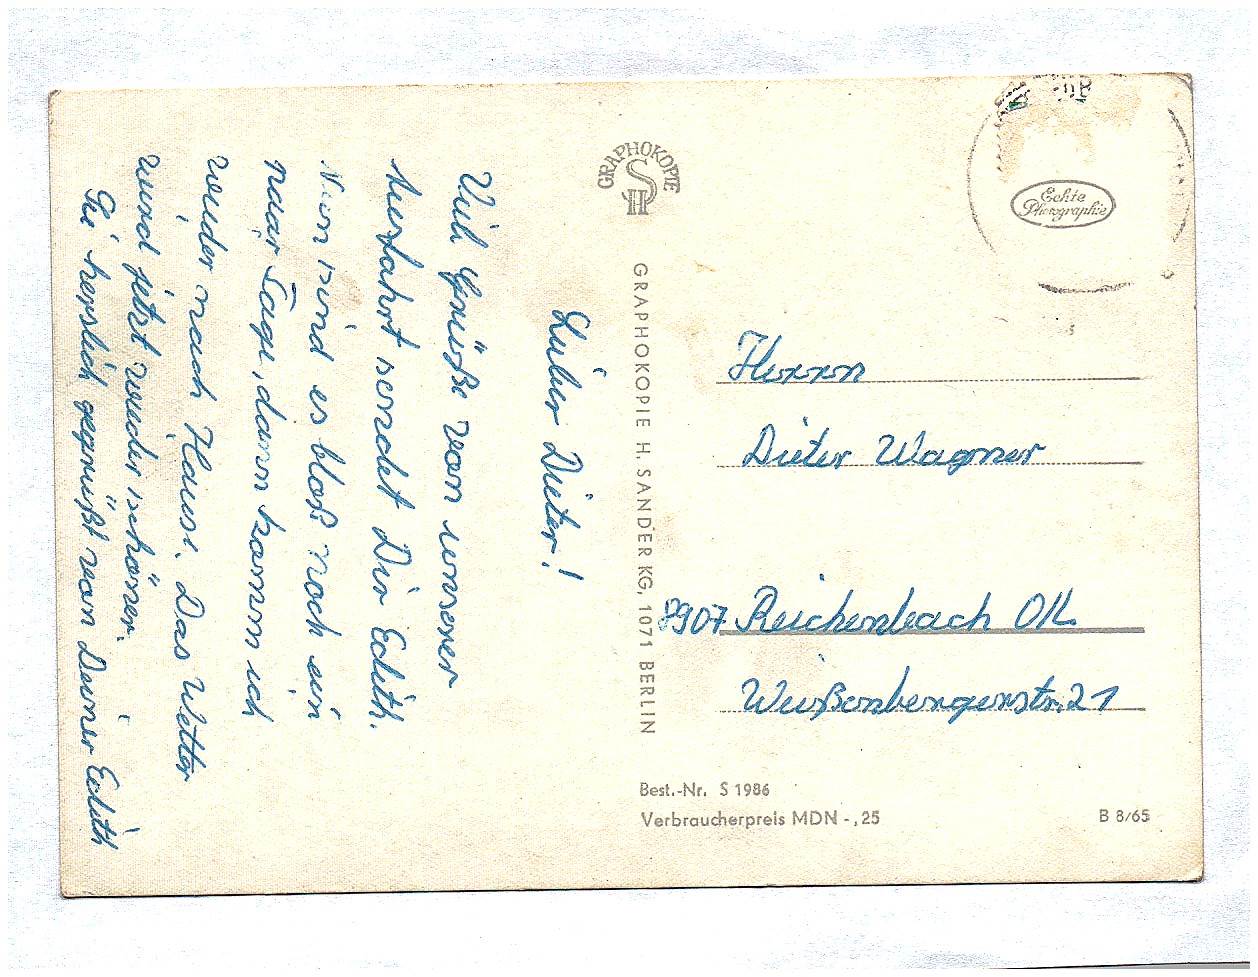 Lieber Dieter!
Viel Grüße von unserer
herfahrt sendet Dir Edith.
Nun sind es bloß noch ein
paar Tage, dann komm ich
wieder nach Haus. Das Wetter
wird jetzt wieder schöner.
Sei herslich gegrüßt von Deiner Edith
GRAPHOKOPIE
HS
GRAPHOKOPIE H. SANDER KG, 1071 BERLIN
Echte
Photographie
Herrn
Dieter Wagner
8907 Reichenbach OL
Weißenbergerstr. 21
Best.-Nr. S 1986
Verbraucherpreis MDN -,25
B 8/65